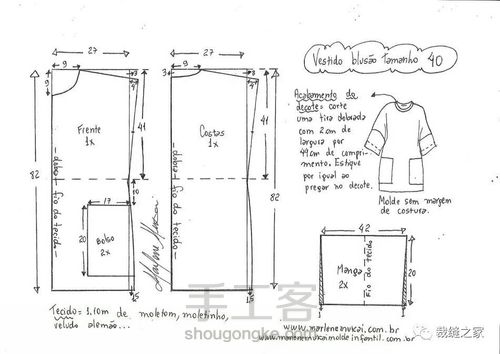 Vestido blusão Tamanho 40
27
27
9
9
3
4
3
9
3
4
Frente
1x
Costas
1x
41
41
82
82
dobra - fio do tecido
dobra - fio do tecido
20
17
20
Bolso
2x
15
15
Marlene Mukai
Acabamento do
decote: corte
uma tira dobrada
com 2cm de
largura por
49cm de compri-
mento. Estique
por igual ao
pregar no decote.
Molde sem margem
de costura.
42
Manga
2x
Fio do tecido
20
1
1
Tecido: 1.10m de moletom, moletinho,
veludo alemão...
www.marlenemukai.com.br
www.marlenemukaimoldeinfantil.com.br
手工客
shougongke.com
裁缝之家